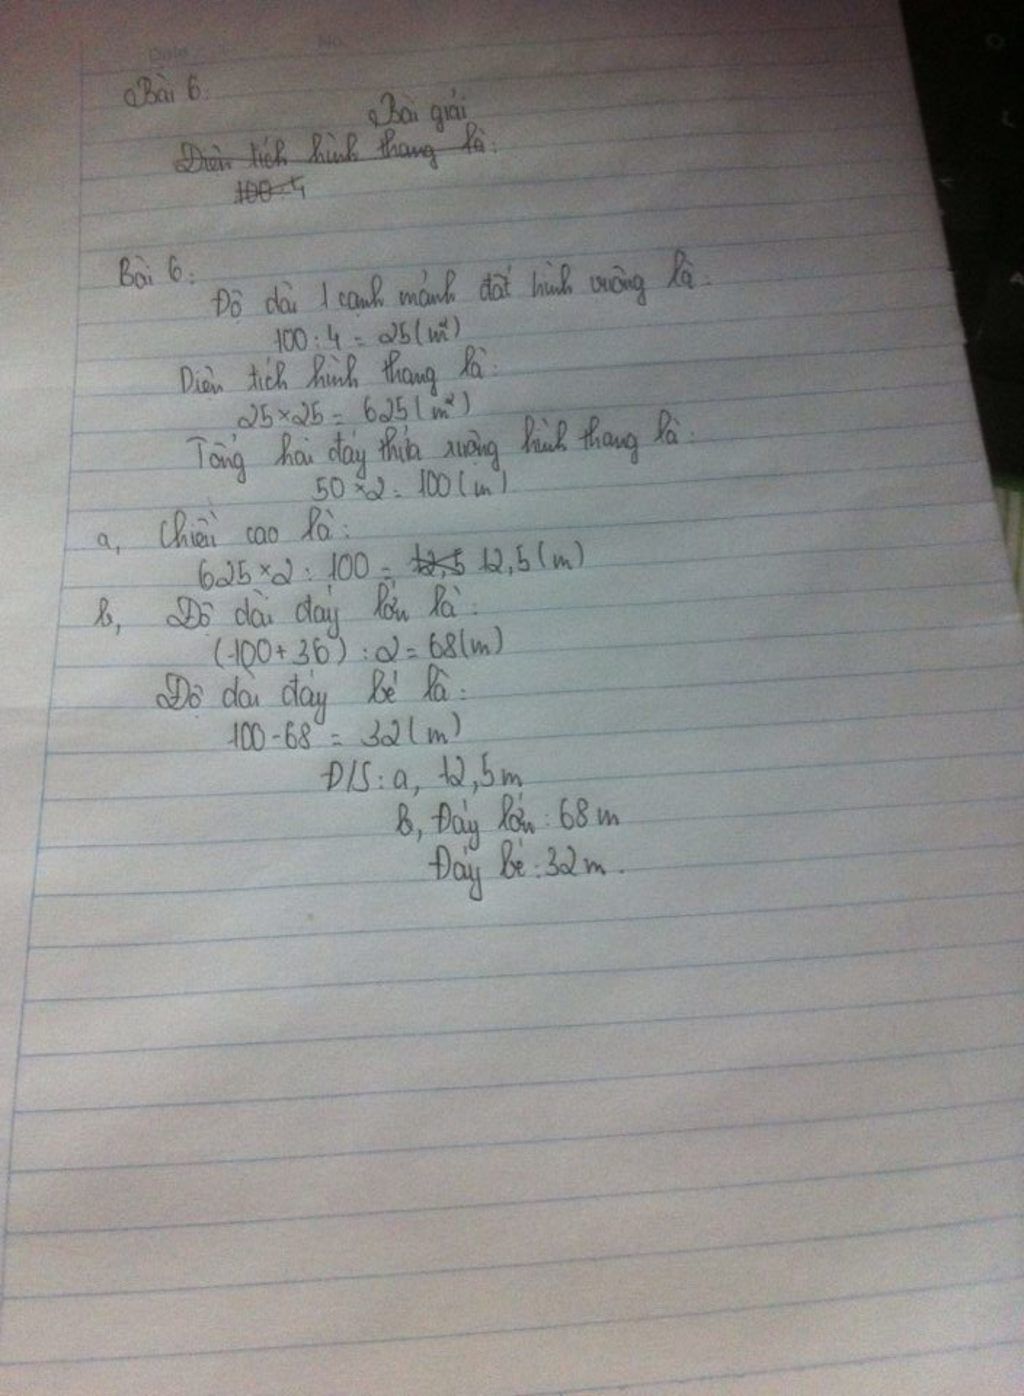 Bài 6.
Bài giải
Diện tích hình thang là:
100:4
Bài 6:
Độ dài 1 cạnh mảnh đất hình vuông là:
100 : 4 = 25 (m²)
Diện tích hình thang là:
25 × 25 = 625 (m²)
Tổng hai đáy thửa ruộng hình thang là:
50 × 2 = 100 (m)
a, Chiều cao là:
625 × 2 : 100 = 12,5 12,5 (m)
b, Độ dài đáy lớn là:
(100 + 36) : 2 = 68 (m)
Độ dài đáy bé là:
100 - 68 = 32 (m)
Đ/S: a, 12,5 m
b, Đáy lớn: 68 m
Đáy bé: 32 m.